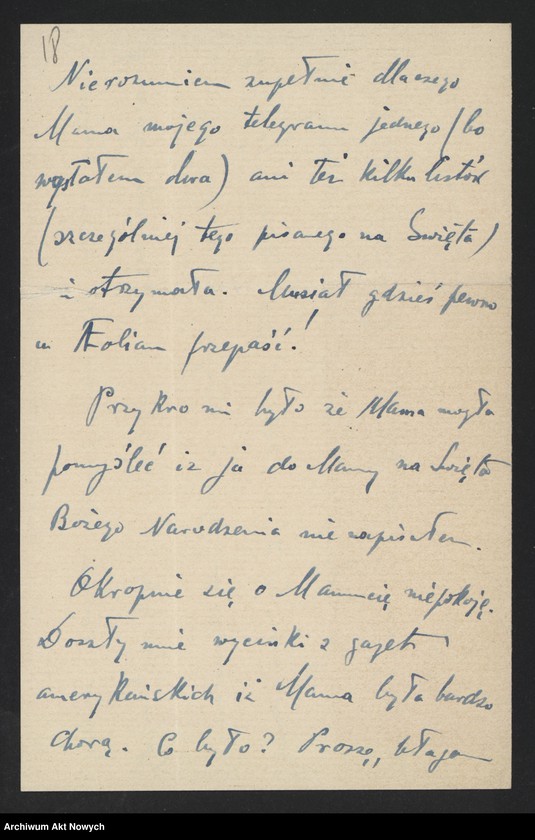 18
Nierozumiem zupełnie dlaczego
Mama mojego telegramu jednego (bo
wysłałem dwa) ani też kilku listów
(szczególniej tego pisanego na Święta)
i otrzymała. Musiał gdzieś pewno
w Æolian przepaść!
Przykro mi było że Mama mogła
pomyśleć iż ja do Mamy na Święta
Bożego Narodzenia nie napisałem.
Okropnie się o Mamucię niepokoję.
Doszły mnie wycinki z gazet
amerykańskich iż Mama była bardzo
chorą. Co było? Proszę, błagam
Archiwum Akt Nowych